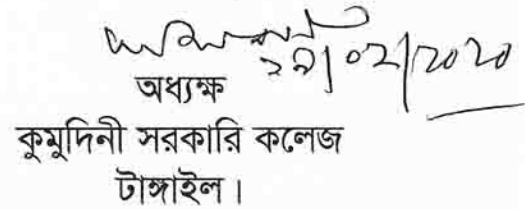 ২৯/০২/২০২০
অধ্যক্ষ
কুমুদিনী সরকারি কলেজ
টাঙ্গাইল।